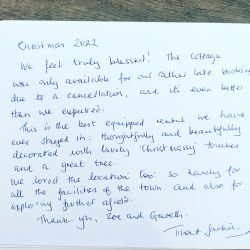 Christmas 2022
We feel truly blessed! The cottage
was only available for our rather late booking
due to a cancellation, and it's even better
than we expected.
This is the best equipped rental we have
ever stayed in: thoughtfully and beautifully
decorated with lovely 'Christmassy' touches
and a great tree.
We loved the location too: so handy for
all the facilities of the town and also for
exploring further afield.
Thank you, Zoe and Gareth.
Jackie